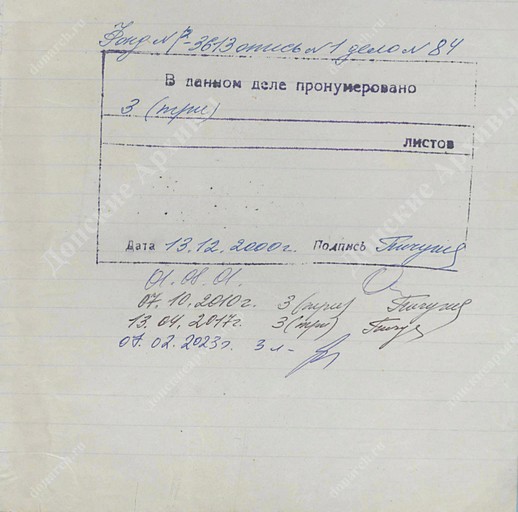 Фонд № Р-3613 опись № 1 дело № 84
В данном деле пронумеровано
3 (три)
листов
Дата 13.12.2000г. Подпись Пичугина
01.08.01.
07.10.2010г. 3 (три)
13.04.2017г. 3 (три)
07.02.2023г. 3 л-
Донские Архивы
donarch.ru